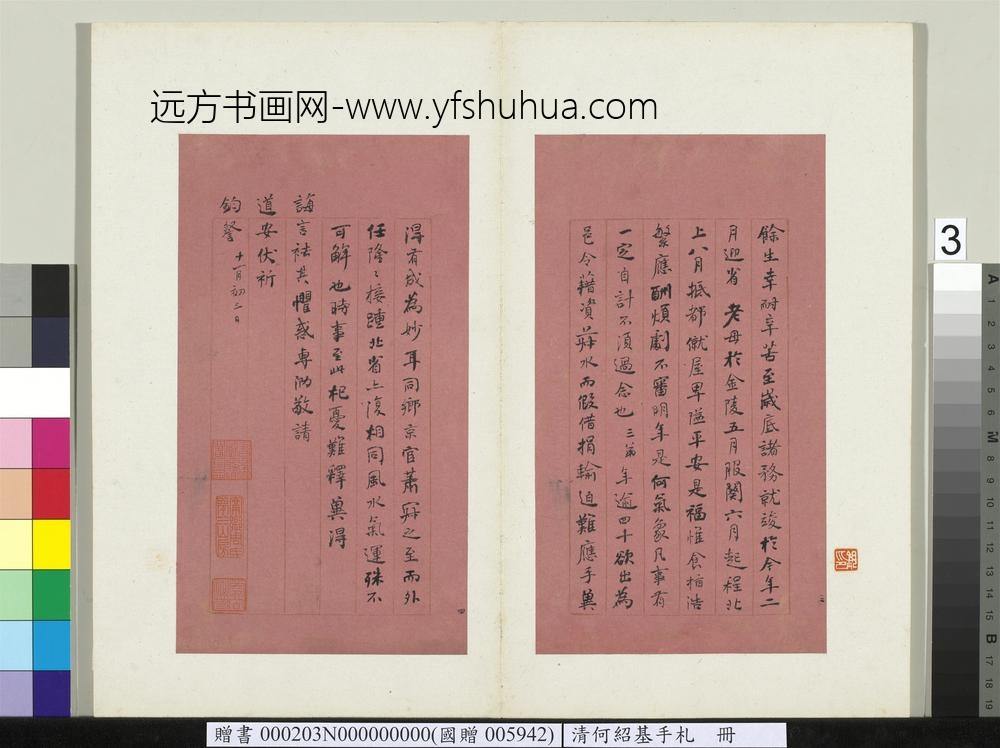 远方书画网-www.yfshuhua.com
餘生幸耐辛苦至歲底諸務就竣於今年二
月迎省 老母於金陵五月服闋六月起程北
上八月抵都僦屋卑隘平安是福惟食指浩
繁應酬煩劇不審明年是何氣象凡事有
一定自計不須過念也三弟年逾四十欲出為
邑令藉資菽水而假借捐輸迫難應手冀
得有成為妙耳同鄉京官蕭寂之至而外
任隆隆接踵北省上復相同風水氣運殊不
可解也時事至此杞憂難釋冀得
誨言祛其懼惑專泐敬請
道安伏祈
鈞詧 十一月初三日
3
贈書 000203N000000000(國贈 005942)
清何紹基手札 冊
A 1 2 3 4 5 6 M 8 9 10 11 12 13 14 15 B 17 18 19